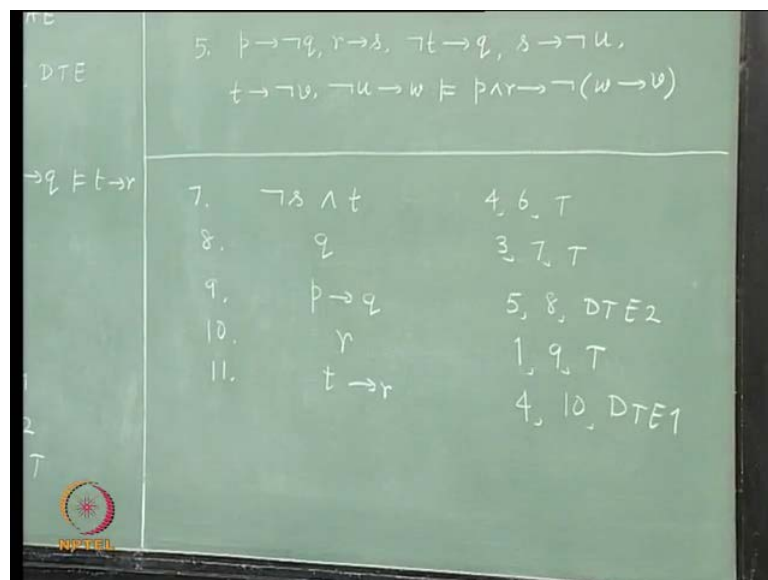 DTE
→q ⊨ t→r
2
T
5. p→¬q, r→s, ¬t→q, s→¬u,
t→¬v, ¬u→w ⊨ p∧r→¬(w→v)
7. ¬s ∧ t 4, 6, T
8. q 3, 7, T
9. p→q 5, 8, DTE2
10. r 1, 9, T
11. t→r 4, 10, DTE1
NPTEL